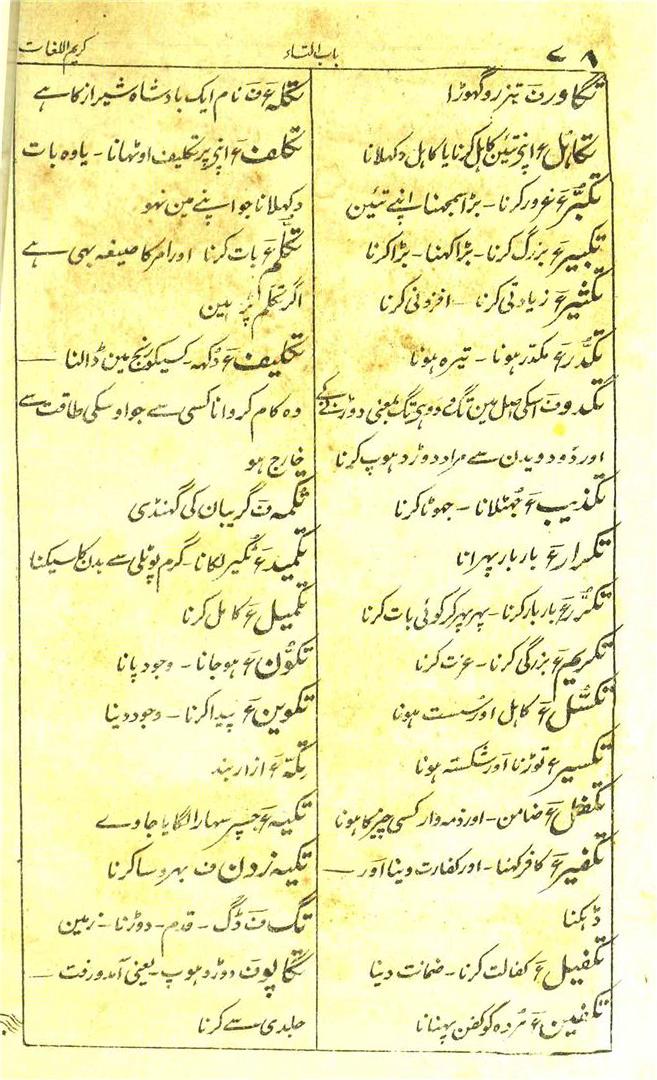 ۷۸
باب التاء
کریم اللغات
تگاور ف تیز رو گھوڑا
تکاہل ع اپنی تئین کاہل کرنا یا کاہل دکہلانا
تکبّر ع غرور کرنا - بڑا سمجہنا اپنے تئین
تکبیر ع بزرگ کرنا - بڑا کہنا - بڑا کرنا
تکثیر ع زیادتی کرنا - افزونی کرنا
تکدّر ع مکدّر ہونا - تیرہ ہونا
تگدو ف اسکی اصل مین تگ دوہی تگ بمعنی دوڑنے کے
اور دَو دویدن سے مراد دوڑ دہوپ کرنا
تکذیب ع جُھٹلانا - جہوٹا کرنا
تکرار ع بار بار پہرانا
تکرّر ع بار بار کرنا - پہر پہر کر کوئی بات کرنا
تکریم ع بزرگی کرنا - عزت کرنا
تکسّل ع کاہل اور سُست ہونا
تکسیر ع توڑنا اور شکستہ ہونا
تکفّل ع ضامن - اور ذمہ وار کسی چیز کا ہونا
تکفیر ع کافر کہنا - اور کفارت دینا اور
ڈہکنا
تکفیل ع کفالت کرنا - ضمانت دینا
تکفین ع مُردہ کو کفن پہنانا
تکلہ ع ف نام ایک بادشاہ شیراز کا ہے
تکلف ع اپنی پر تکلیف اوٹہانا - یا وہ بات
دکہلانا جو اپنے مین نہو
تکلّم ع بات کرنا اور امر کا صیغہ بہی ہے
اگر تکلّم پڑہین
تکلیف ع دُکہہ - کسیکو رنج مین ڈالنا
وہ کام کروانا کسی سے جو اوسکی طاقت سے
خارج ہو
تکمہ ف گریبان کی گہنڈی
تکمید ع ٹکیر لگانا - گرم پوٹلی سے بدن کا سیکنا
تکمیل ع کامل کرنا
تکوّن ع ہو جانا - وجود پانا
تکوین ع پیدا کرنا - وجود دینا
تِکّہ ع ازاربند
تکیہ ع جسپر سہارا لگایا جاوے
تکیہ زدن ف بہروسا کرنا
تگ ف ڈگ - قدم - دوڑنا - زمین
تگاپو ف دوڑ دہوپ - یعنی آمد و رفت
جلدی سے کرنا